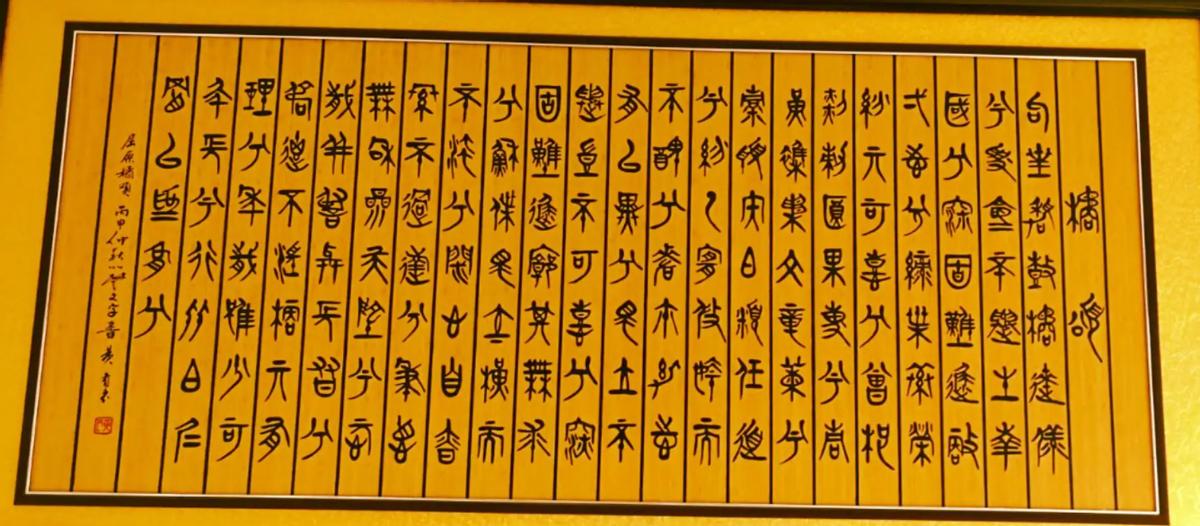 橘頌
后皇嘉樹橘徠服
兮受命不遷生南
國兮深固難徙更
壹志兮綠葉素榮
紛其可喜兮曾枝
剡棘圓果摶兮青
黃雜糅文章爛兮
精色內白類任道
兮紛縕宜修姱而
不醜兮嗟爾幼志
有以異兮獨立不
遷豈不可喜兮深
固難徙廓其無求
兮蘇世獨立橫而
不流兮閉心自慎
終不失過兮秉德
無私參天地兮願
歲並謝與長友兮
淑離不淫梗其有
理兮年歲雖少可
師長兮行比伯夷
置以為像兮
屈原橘頌 丙申仲秋以楚文字書 黃